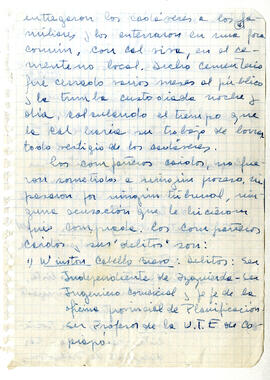 entregaron los cadáveres a los fa-
miliares y los enterraron en una fosa
común, con cal viva, en el ce-
menterio local. Dicho cementerio
fué cerrado varios meses al público
y la tumba custodiada noche y
día, calculando el tiempo que
la cal haría su trabajo de borrar
todo vestigio de los cadáveres.
Los compañeros caidos, no fue
ron sometidos a ningún proceso, no
pasaron por ningún tribunal, nin
guna acusación que le hicieron
fué comprobada. Los compañeros
caidos y sus "delitos" son:
1) Winston Cabello Bravo: Delitos: Ser
Independiente de Izquierda - Ser
Ingeniero Comercial y jefe de la
oficina provincial de Planificación
ser Profesor de la U.T.E de Co
piapó.